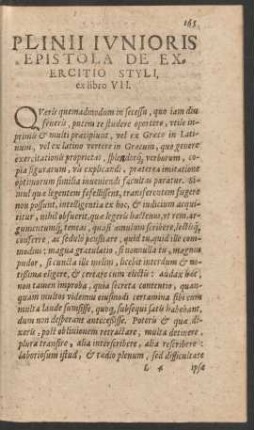 165
PLINII IVNIORIS
EPISTOLA DE EX-
ERCITIO STYLI,
ex libro VII.
QVæris quemadmodum in secessu, quo iam diu
frueris, putem te studere oportere, vtile in
primis & multi præcipiunt, vel ex Græco in Lati-
num, vel ex latino vertere in Græcum, quo genere
exercitationis proprietas, splendorq́; verborum, co-
pia figurarum, vis explicandi, præterea imitatione
optimorum similia inueniendi facultas paratur. si-
mul quæ legentem fefellissent, transferentem fugere
non possunt, intelligentia ex hoc, & iudicium acqui-
ritur, nihil obfuerit, quæ legeris hactenus, vt rem, ar-
gumentumq́; teneas, quasi æmulum scribere, lectisq́;
conferre, ac sedulò pensitare, quid tu, quid ille com-
modius: magna gratulatio, si nonnulla tu, magnus
pudor, si cuncta ille melius, licebit interdum & no-
tissima eligere, & certare cum electis: audax hæc,
non tamen improba, quia secreta contentio, quan-
quam multos videmus eiusmodi certamina sibi cum
multa laude sumsisse, quosq́; subsequi satis habebant,
dum non desperant antecessisse. Poteris & quæ di-
xeris, post obliuionem retractare, multa detinere,
plura transire, alia interscribere, alia rescribere:
laboriosum istud, & tædio plenum, sed difficultate
L 4 ipsa